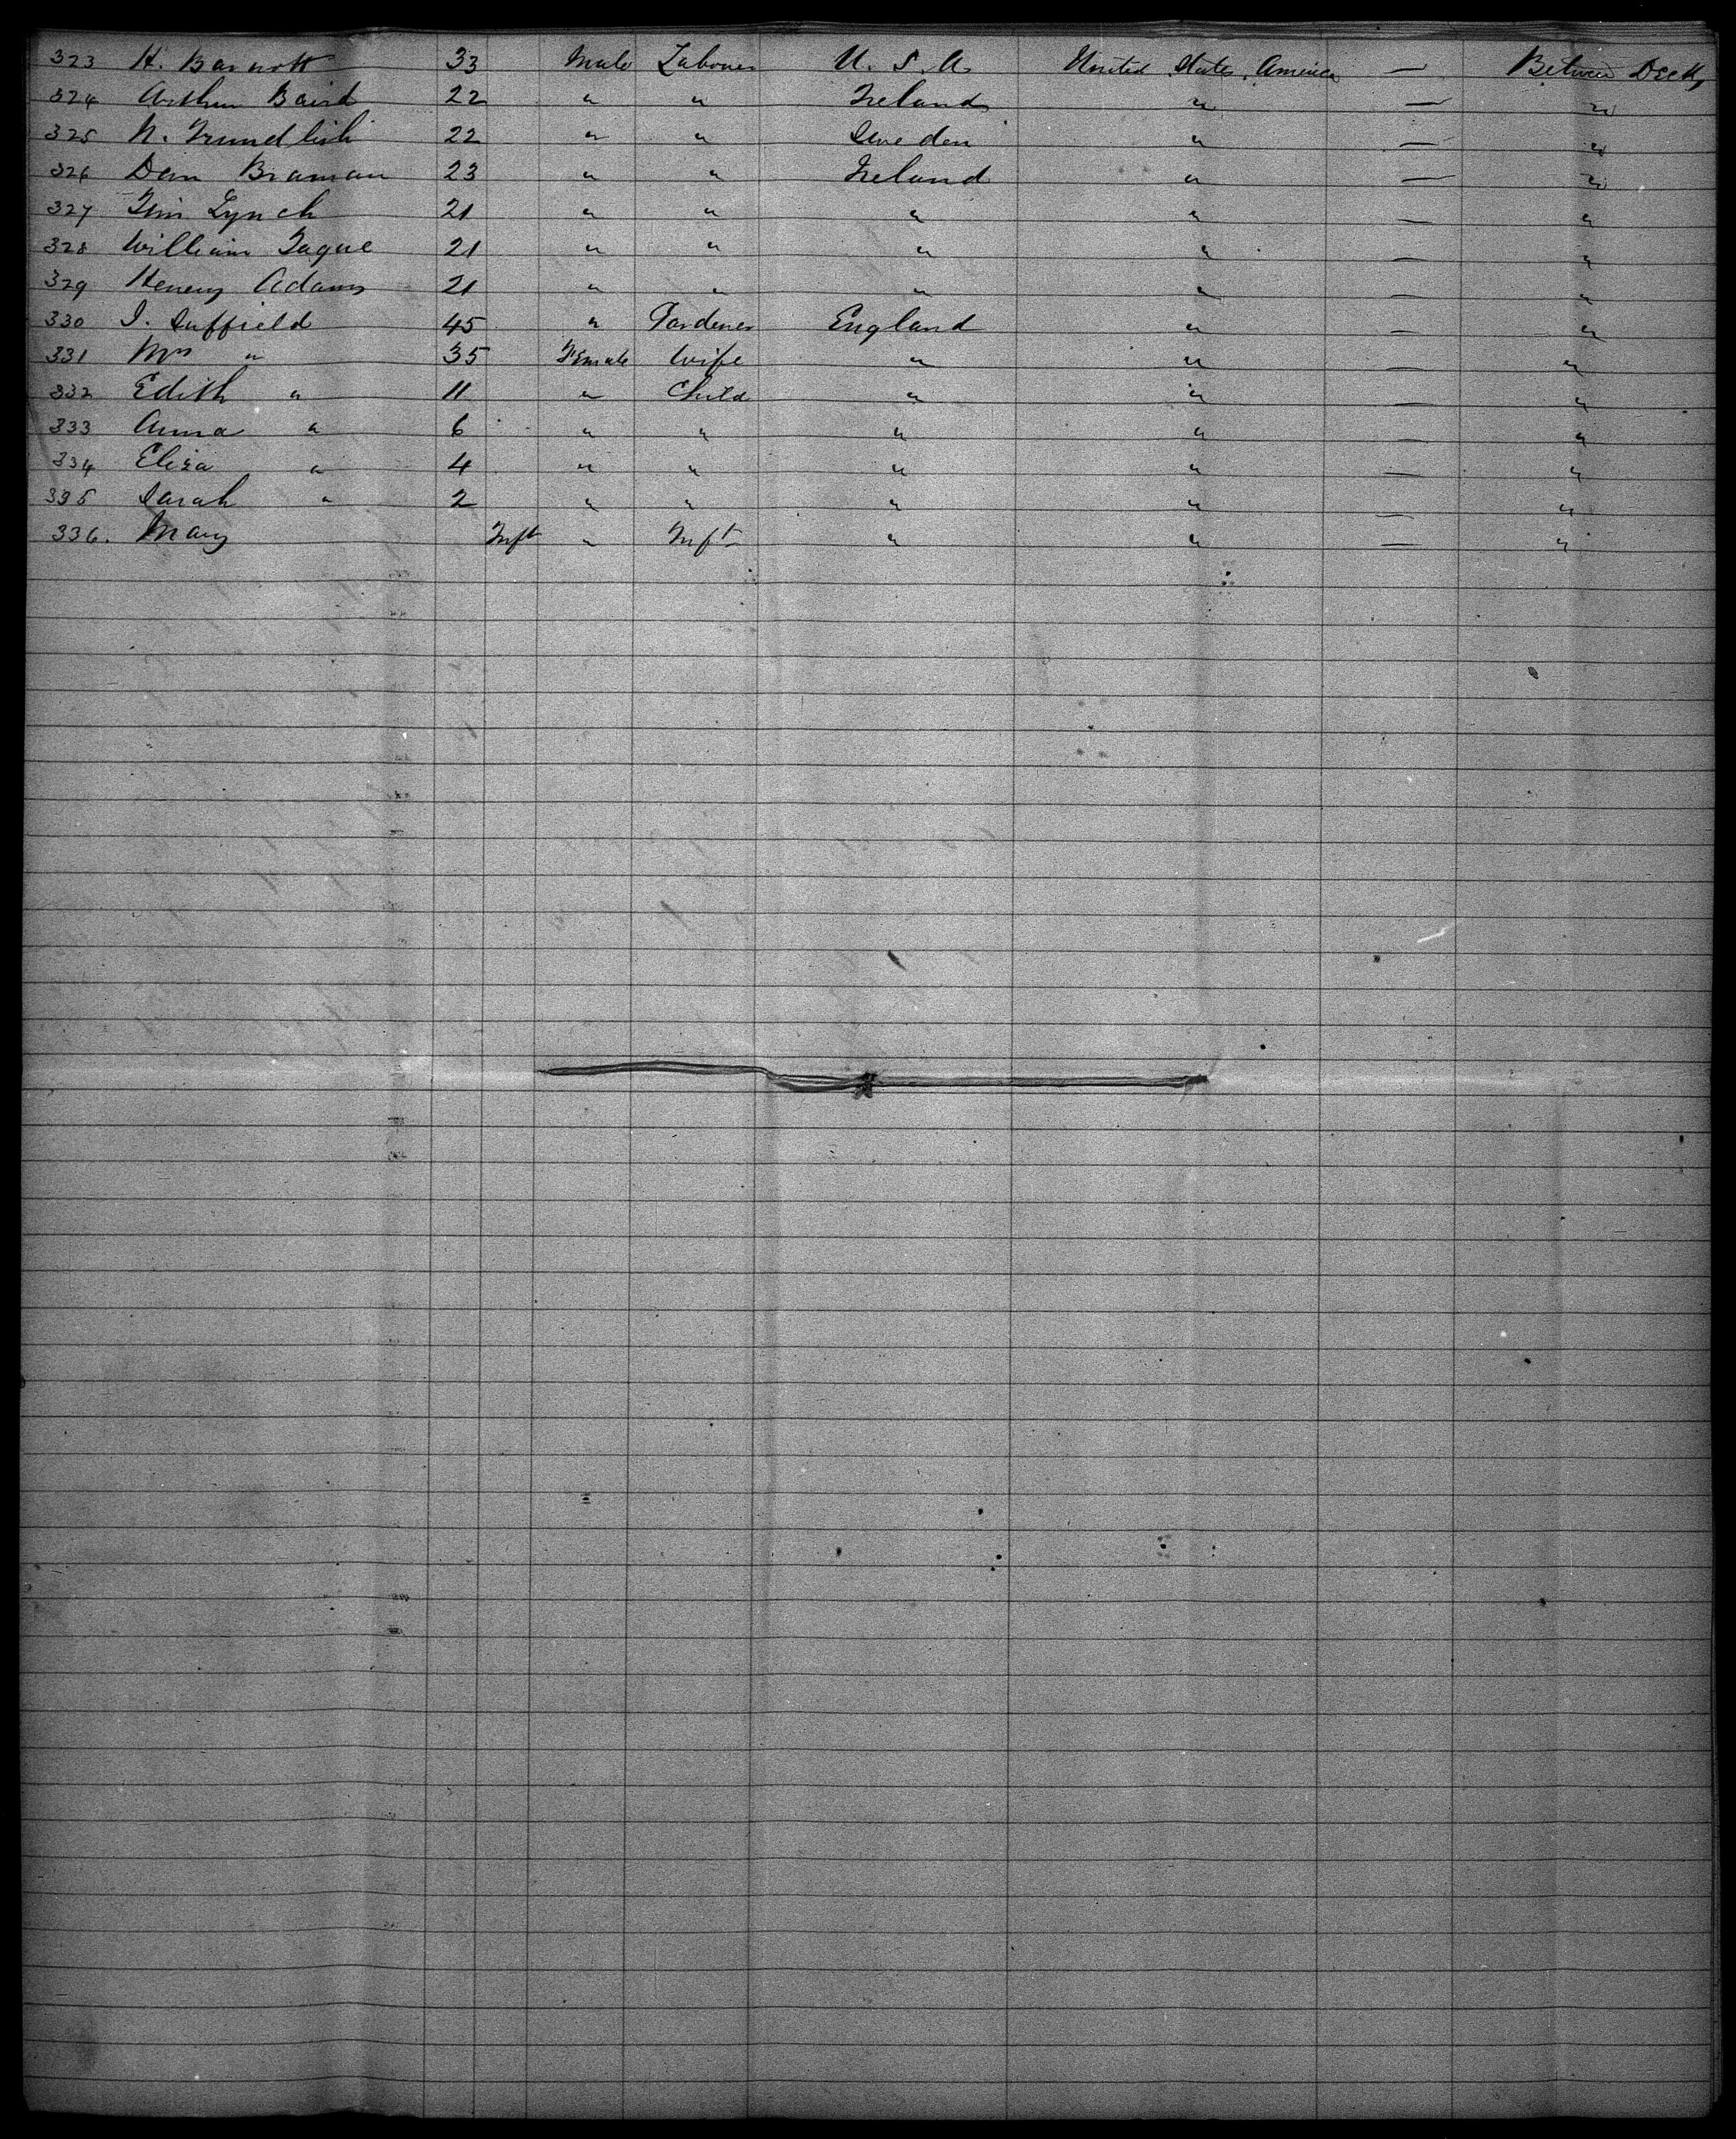 323 H. Barnott 33 Male Labourer U. S. A. United States America — Between Decks
324 Arthur Baird 22 " " Ireland " — "
325 N. 22 " " Sweden " — "
326 Dan Braman 23 " " Ireland " — "
327 Tim Lynch 21 " " " " — "
328 William Tague 21 " " " " — "
329 Henery Adams 21 " " " " — "
330 I. Duffield 45 " Gardener England " — "
331 Mrs " 35 Female Wife " " — "
332 Edith " 11 " Child " " — "
333 Anna " 6 " " " " — "
334 Eliza " 4 " " " " — "
335 Sarah " 2 " " " " — "
336. Mary Inft " Inft " " — "